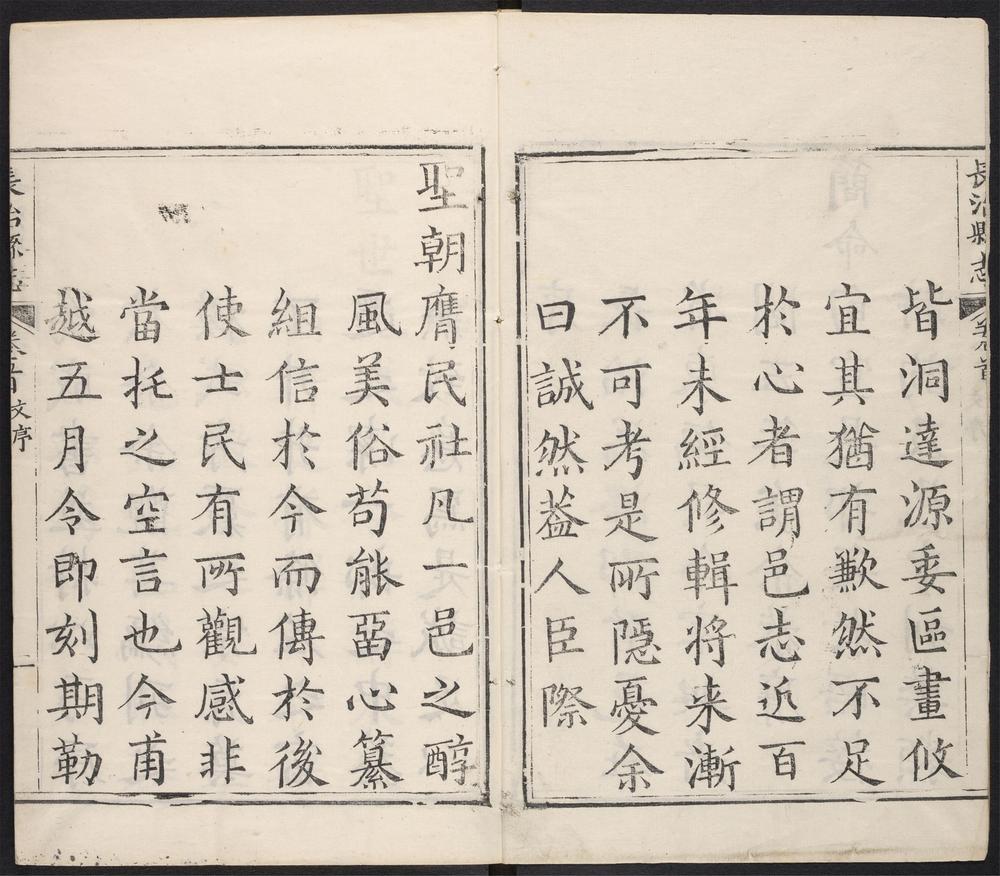 長治縣志
卷首
皆洞達源委區畫攸
宜其猶有歉然不足
於心者謂邑志近百
年未經修輯将来漸
不可考是所隱憂余
曰誠然葢人臣際
聖朝膺民社凡一邑之醇
風美俗苟能畱心纂
組信於今而傳於後
使士民有所觀感非
當托之空言也今甫
越五月令即刻期勒
長治縣志
卷首
文序
一